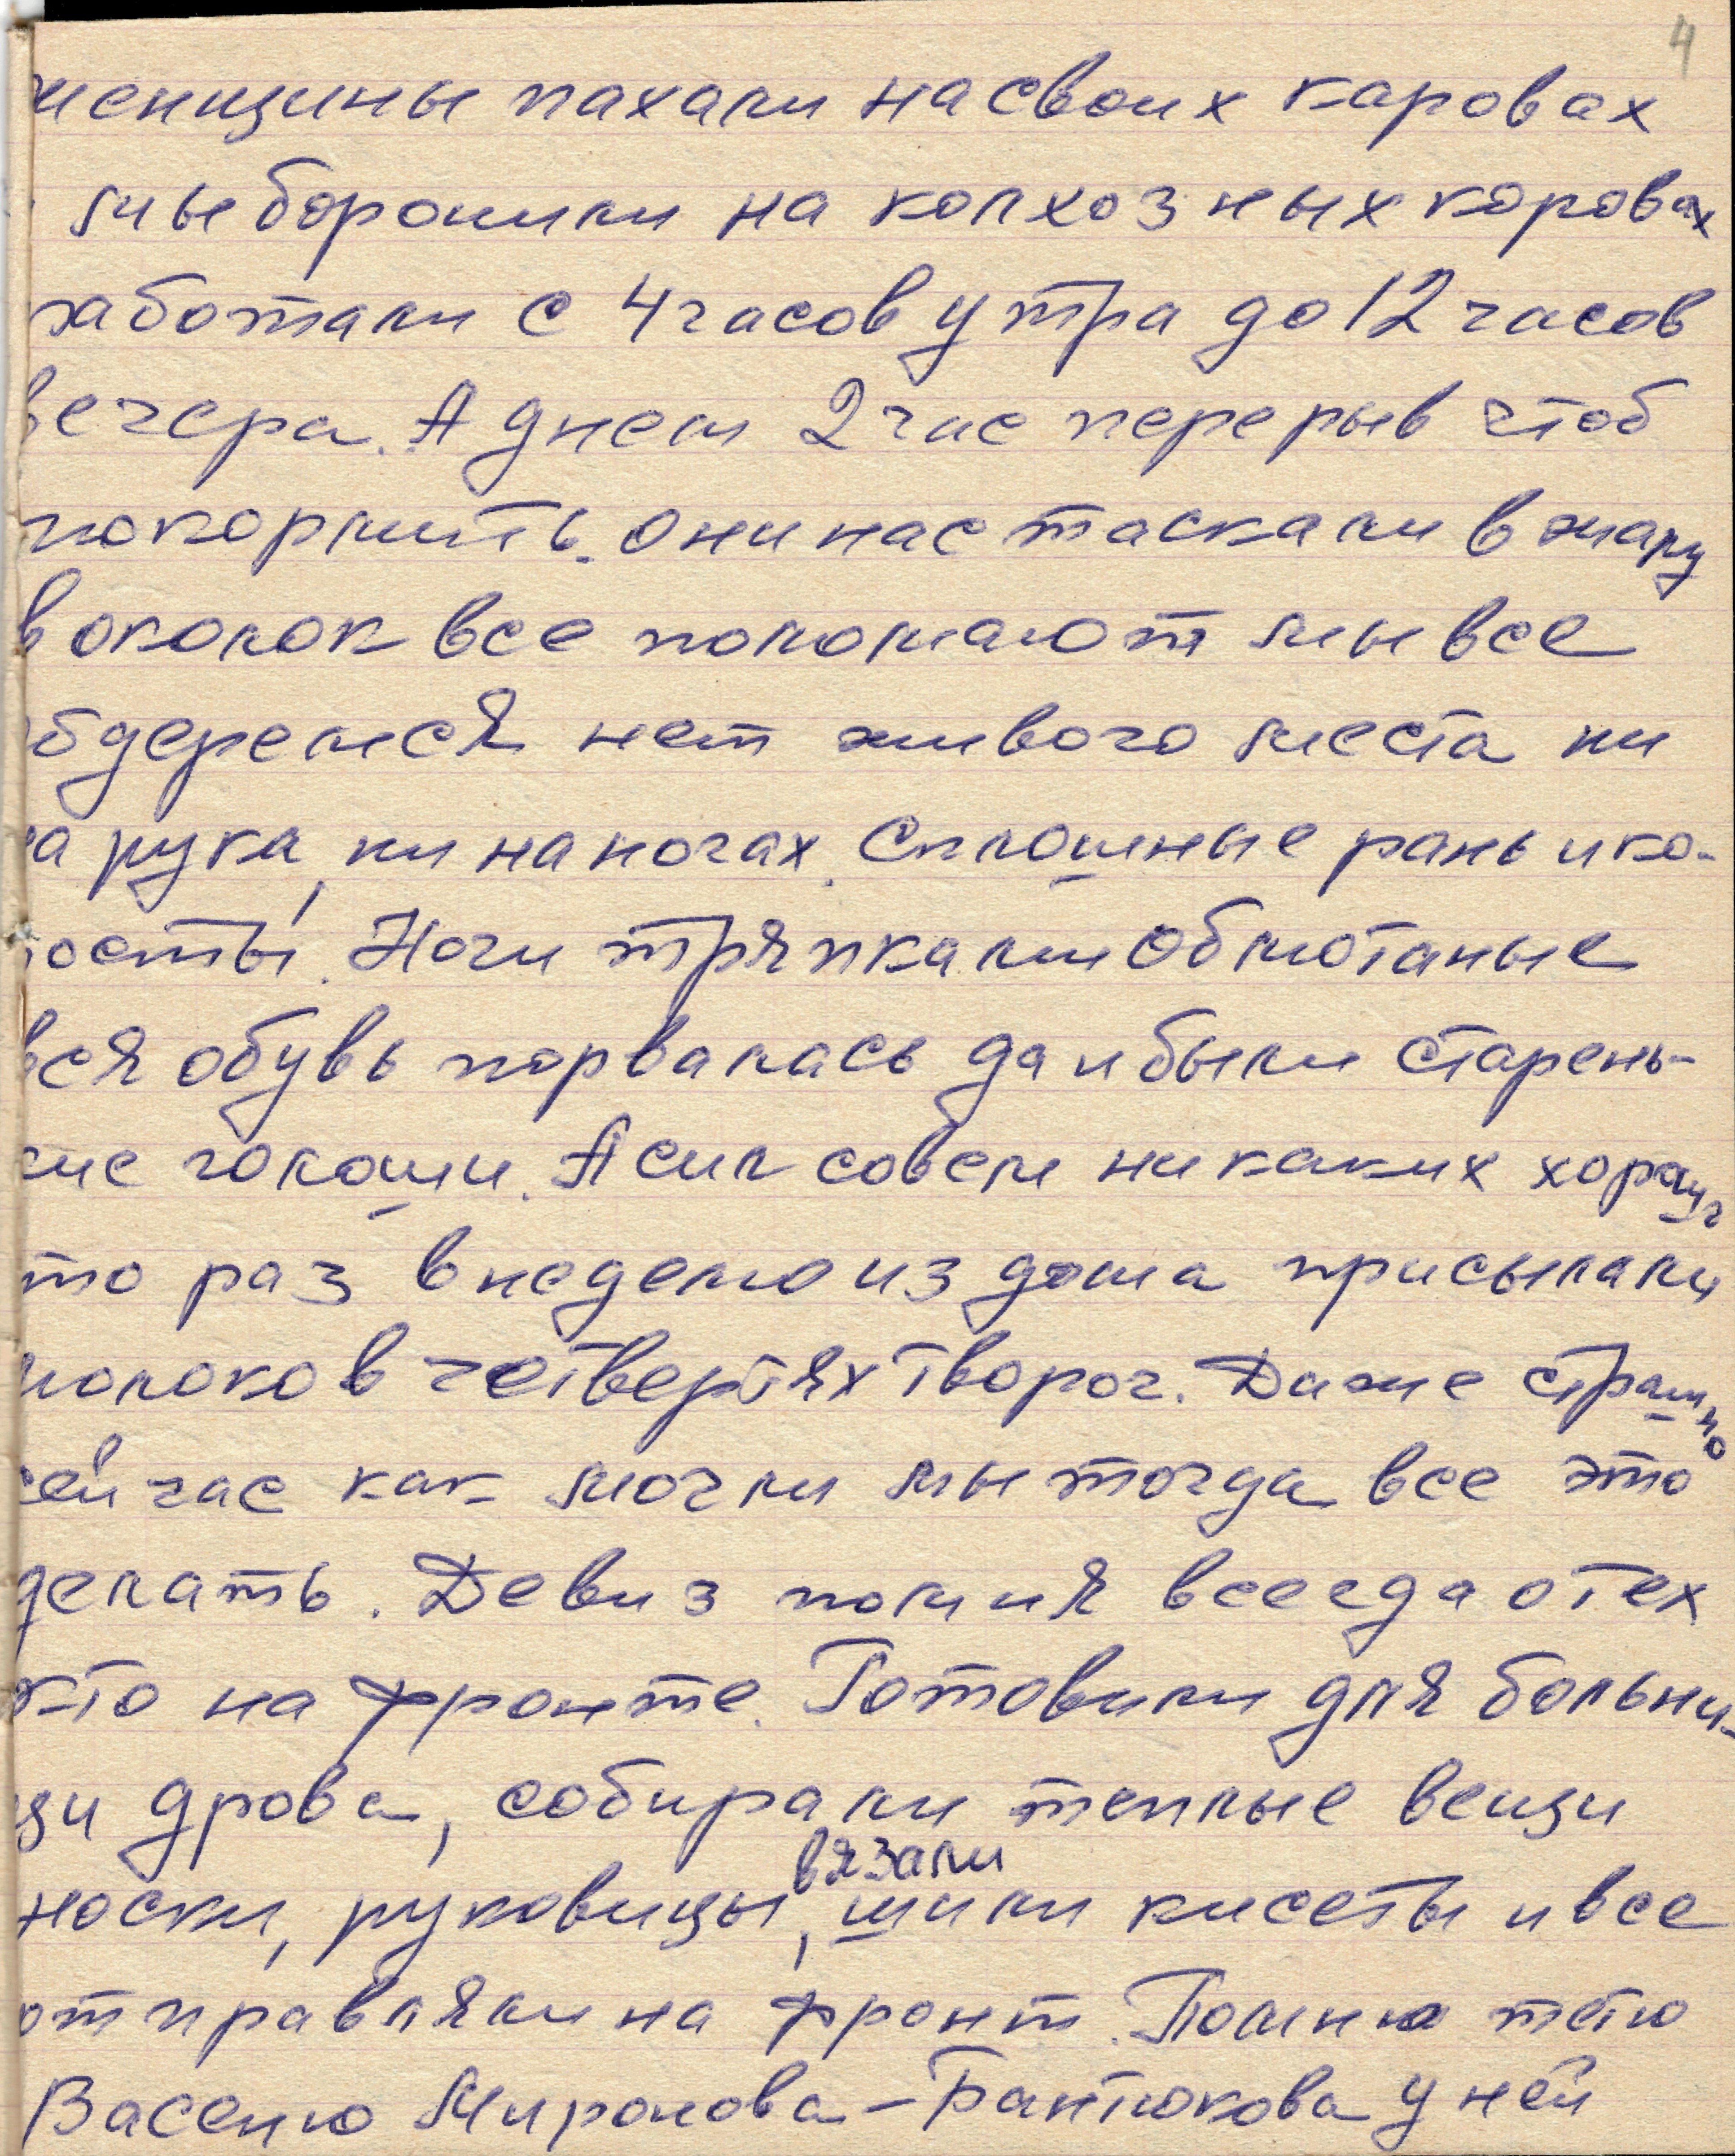 4
женщины пахали на своих каровах
мы боронили на колхозных коровах
работали с 4 часов утра до 12 часов
вечера. А днем 2 час перерыв чтоб
покормить. Они нас таскали в жару
в околок все поломают мы все
обдеремся нет живого места ни
на рука, ни на ногах. Сплошные раны и ко-
росты. Ноги тряпками обмотаные
вся обувь порвалась да и были старень-
кие голоши. А сил совсем никаких хорош
что раз в неделю из дома присылали
молоко в четвертях творог. Даже страшно
сейчас как могли мы тогда все это
делать. Девиз помня всегда о тех
кто на фронте. Готовили для больни-
цы дрова, собирали теплые вещи
вязали
носки, руковицы, шили кисеты и все
отправляли на фронт. Помню тетю
Васеню Миронова-Бантюкова у ней